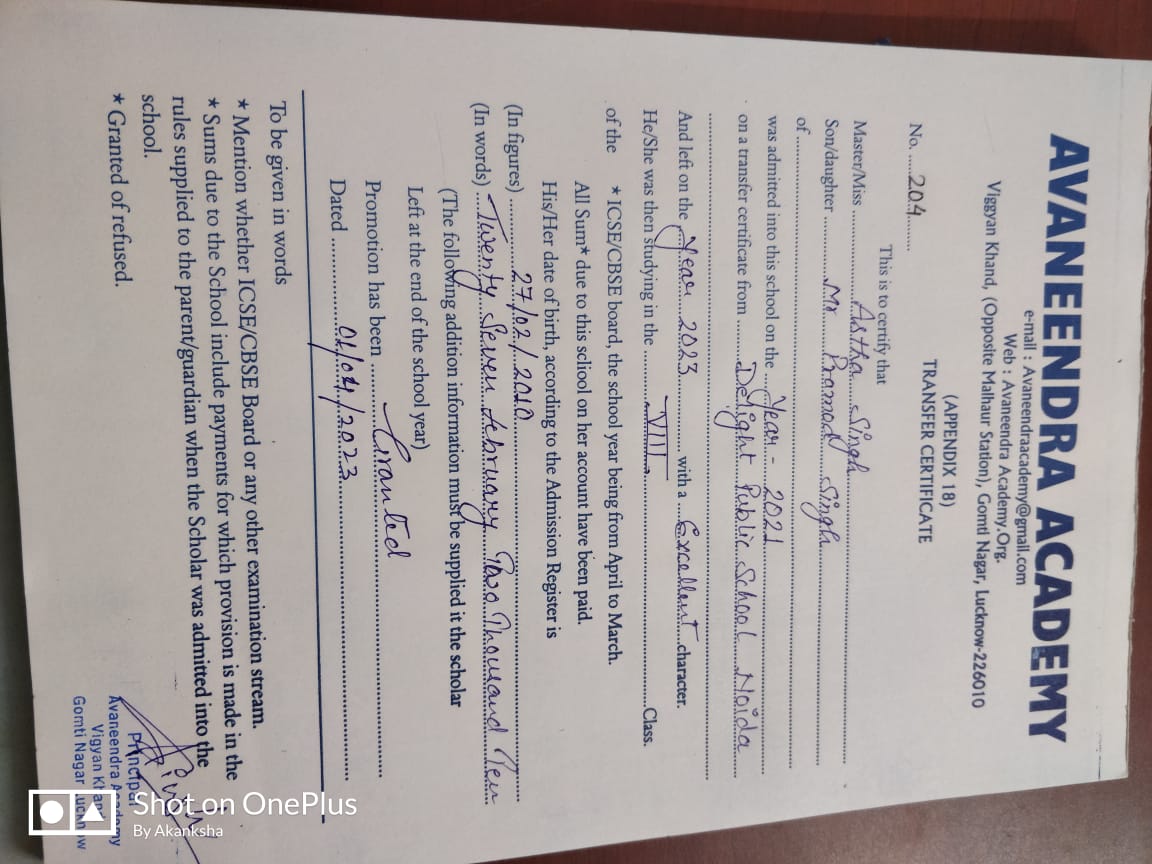 AVANEENDRA ACADEMY
e-mail : Avaneendraacademy@gmail.com
Web : Avaneendra Academy.Org.
Viggyan Khand, (Opposite Malhaur Station), Gomti Nagar, Lucknow-226010
(APPENDIX 18)
TRANSFER CERTIFICATE
No. ....204.........
This is to certify that
Master/Miss ........ Astha Singh ........
Son/daughter ........ Mr Pramod Singh ........
of ........
was admitted into this school on the ... Year - 2021 ........
on a transfer certificate from ........ Delight Public School Noida
And left on the Year 2023 ........ with a .... Excellent ....character.
He/She was then studying in the ........ VIII ........Class.
of the * ICSE/CBSE board, the school year being from April to March.
All Sum* due to this scliool on her account have been paid.
His/Her date of birth, according to the Admission Register is
(In figures) ........ 27/02/2010 ........
(In words) Twenty Seven february Two Thousand Ten
(The following addition information must be supplied it the scholar
Left at the end of the school year)
Promotion has been ........ Granted ........
Dated ........ 01/04/2023 ........
To be given in words
* Mention whether ICSE/CBSE Board or any other examination stream.
* Sums due to the School include payments for which provision is made in the
rules supplied to the parent/guardian when the Scholar was admitted into the
school.
* Granted of refused.
Principal
Avaneendra Academy
Vigyan Khand
Gomti Nagar Lucknow
Shot on OnePlus
By Akanksha